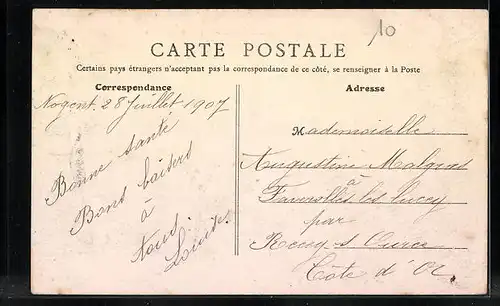 10
CARTE POSTALE
Certains pays étrangers n'acceptant pas la correspondance de ce côté, se renseigner à la Poste
Correspondance
Nogent. 28 Juillet 1907
Bonne santé
Bons baisers
à
Tous.
Louise.
Adresse
Mademoiselle
Augustine Malgras
à
Faverolles les Lucey
par
Recey s Ource
Côte d'Or